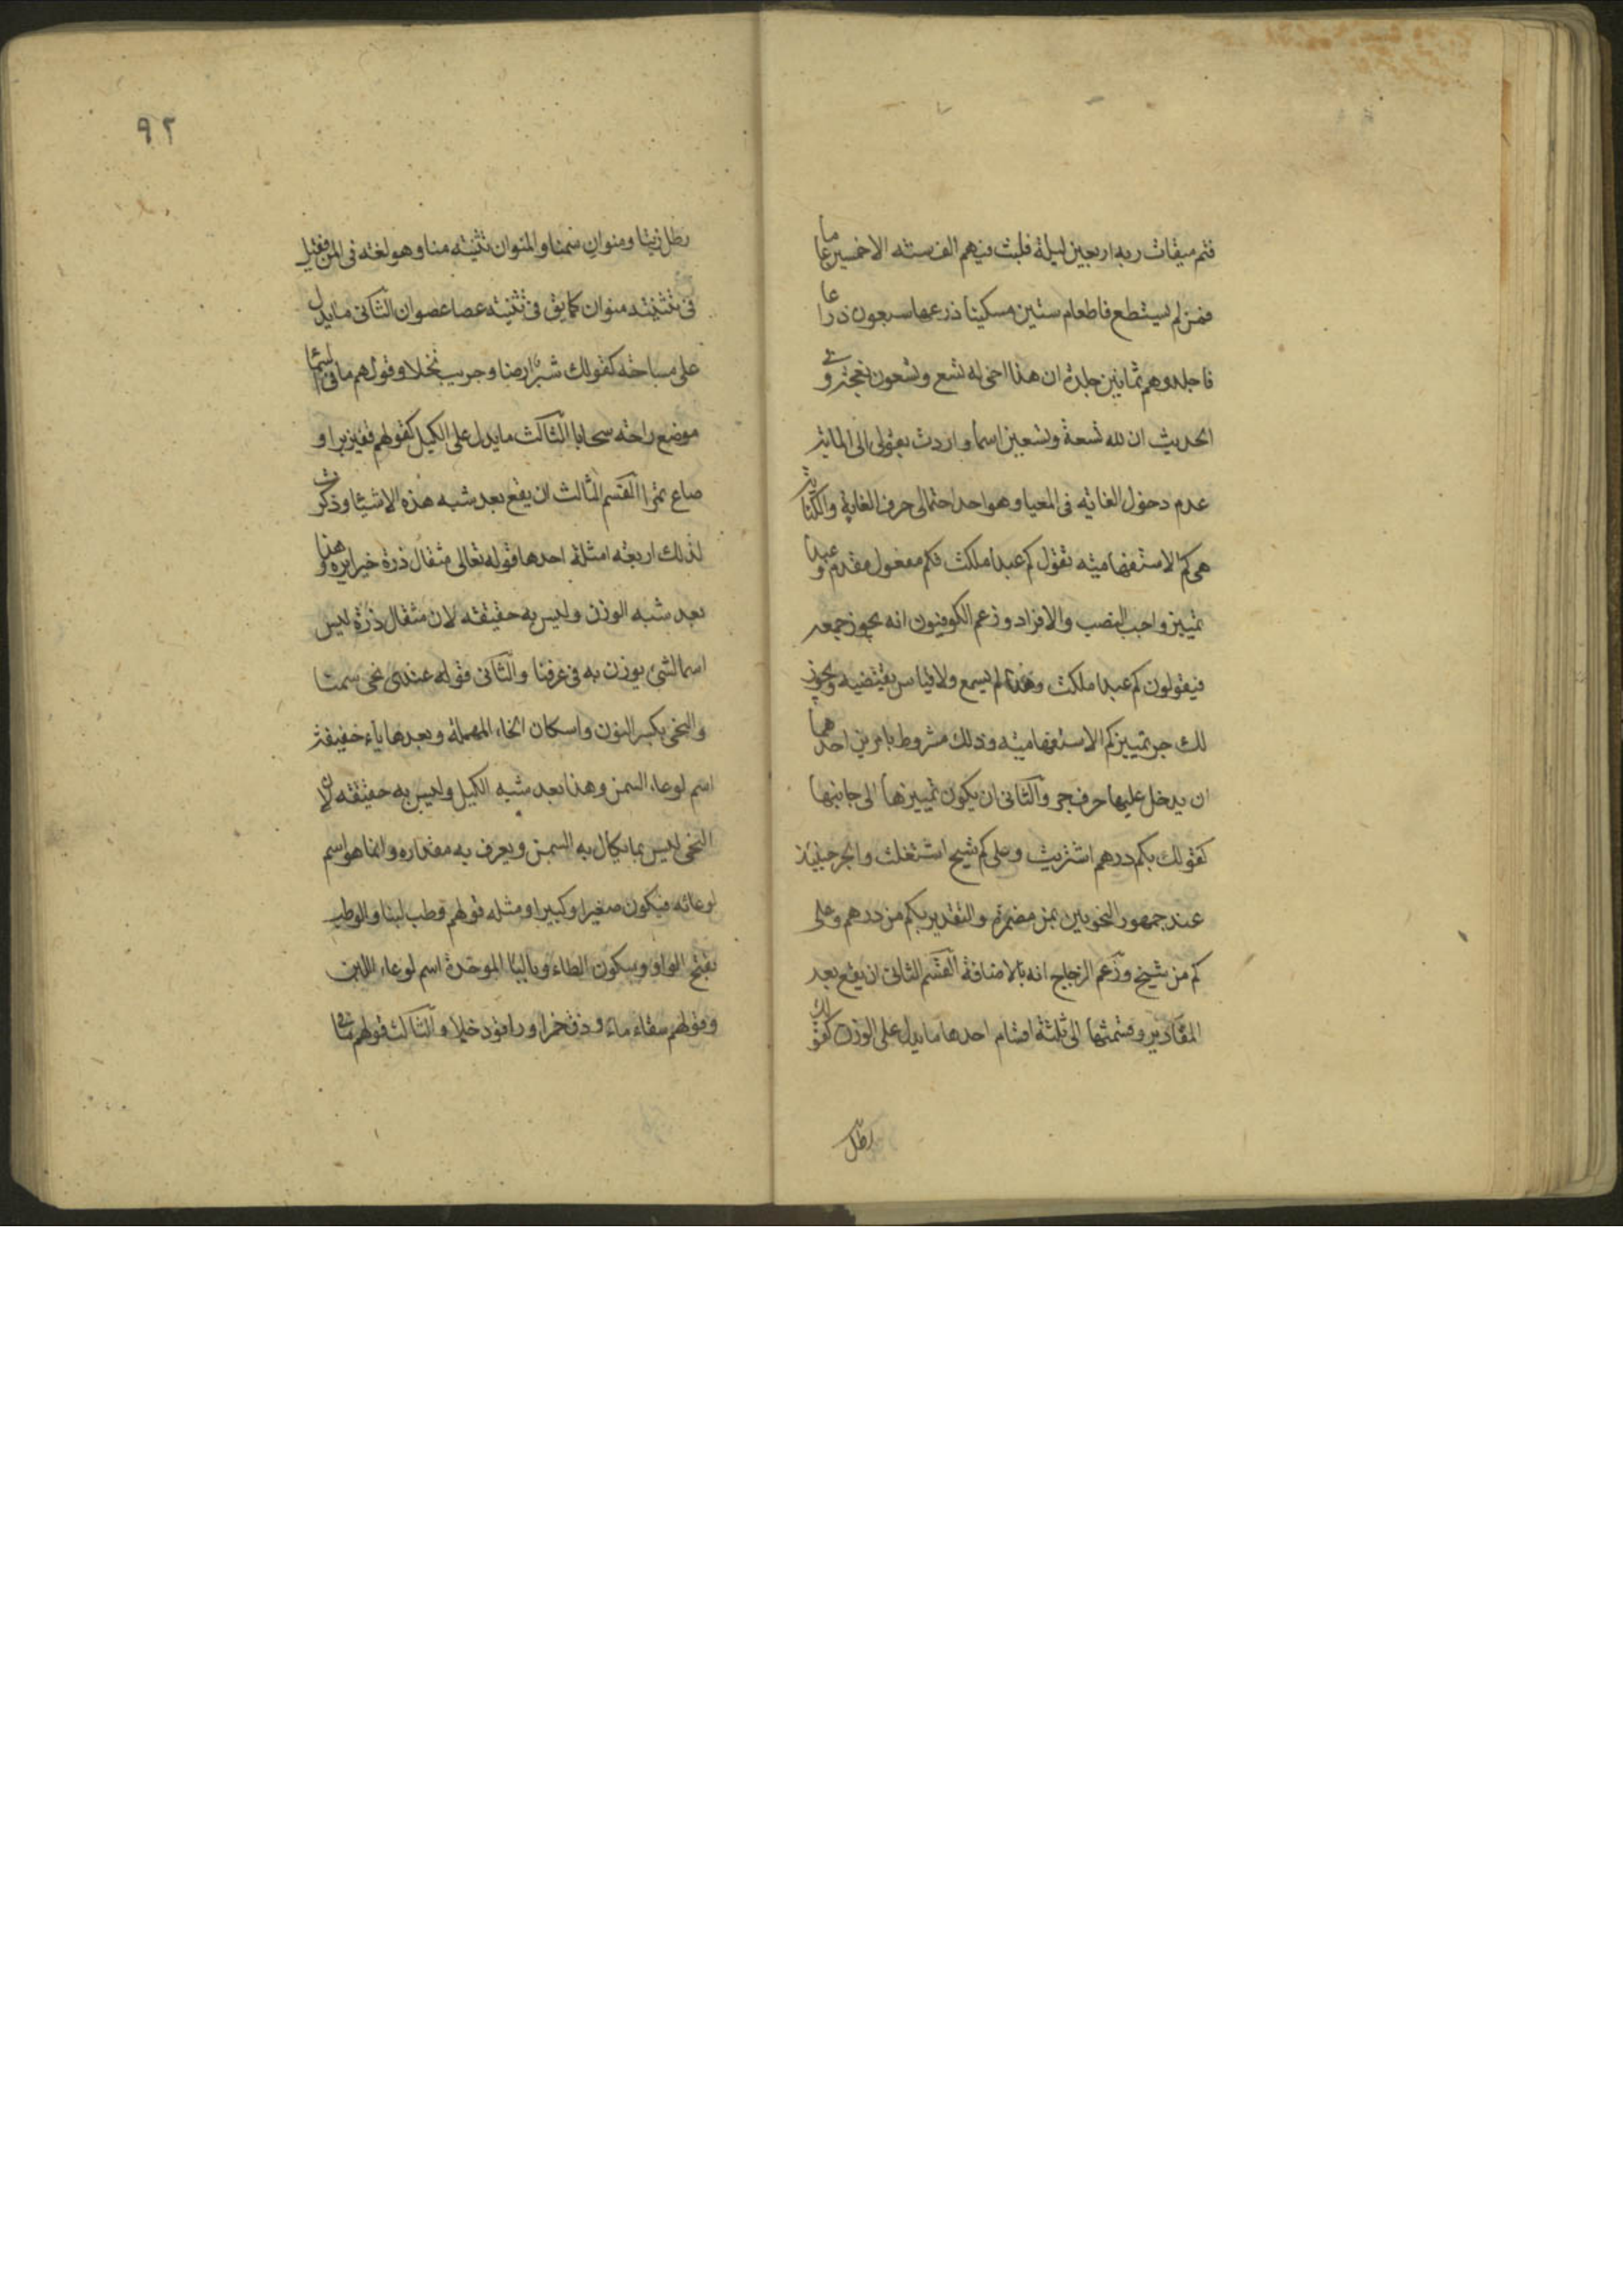 فتم ميقات ربه اربعين ليلة فلبث فيهم الف سنته الا خمسين عاما
فمن لم يستطع فاطعام ستين مسكينا ذرعها سبعون ذراعا
فاجلدوهم ثمانين جلدة ان هذا اخى له تسع وتسعون نعجة وفي
الحديث ان لله تسعة وتسعين اسما واردت بقولى الى الماية
عدم دخول الغاية فى المعيا وهو احد احتمالى حرف الغاية والثانية
هى كم الاستفهاميته تقول كم عبدا ملكت فكم مفعول مقدم وعبدا
تمييز واجب النصب والافراد وزعم الكوفيون انه يجوز جمعه
فيقولون كم عبدا ملكت وهذا لم يسمع ولا قياس يقتضيه ويجوز
لك جر تمييز كم الاستفهاميته وذلك مشروط بامرين احدهما
ان يدخل عليها حرف جر والثانى ان يكون تمييزها الى جانبها
كقولك بكم درهم اشتريت وعلى كم شيخ اشتغلت والجر حينئذ
عند جمهور النحويين بمن مضمرة والتقدير بكم من درهم وعلى
كم من شيخ وزعم الزجاج انه بالاضافة القسم الثانى ان يقع بعد
المقادير وقسمتها الى ثلثة اقسام احدها ما يدل على الوزن كقولك
رطل
٩٢
رطل زيتا ومنوان سمنا والمنوان تثنيته منا وهو لغته فى المن فقيل
فى تثنيته منوان كما يق فى تثنيته عصا عصوان الثانى ما يدل
على مساحته كقولك شبر ارضا وجريب نخلا وقولهم ما فى السما
موضع راحته سحابا الثالث ما يدل على الكيل كقولهم قفيز برا و
صاع تمرا القسم الثالث ان يقع بعد شبه هذه الاشيئا وذكرت
لذلك اربعته امثلة احدها قوله تعالى مثقال ذرة خيرا يره وهذا
بعد شبه الوزن وليس به حقيقته لان مثقال ذرة ليس
اسما لشئ يوزن به فى عرفنا والثانى قوله عندى نحى سمنا
والنحى بكسر النون واسكان الحاء المهملة وبعدها ياء خفيفة
اسم لوعاء السمن وهذا بعد شبه الكيل وليس به حقيقته لان
النحى ليس بما يكال به السمن ويعرف به مقداره وانما هو اسم
لوعائه فيكون صغيرا وكبيرا ومثله قولهم وطب لبنا والوطب
بفتح الواو وسكون الطاء وبالبا الموحدة اسم لوعاء اللبن
وقولهم سقاء ماء وزق خمرا وراقود خلا والثالث قولهم ما فى